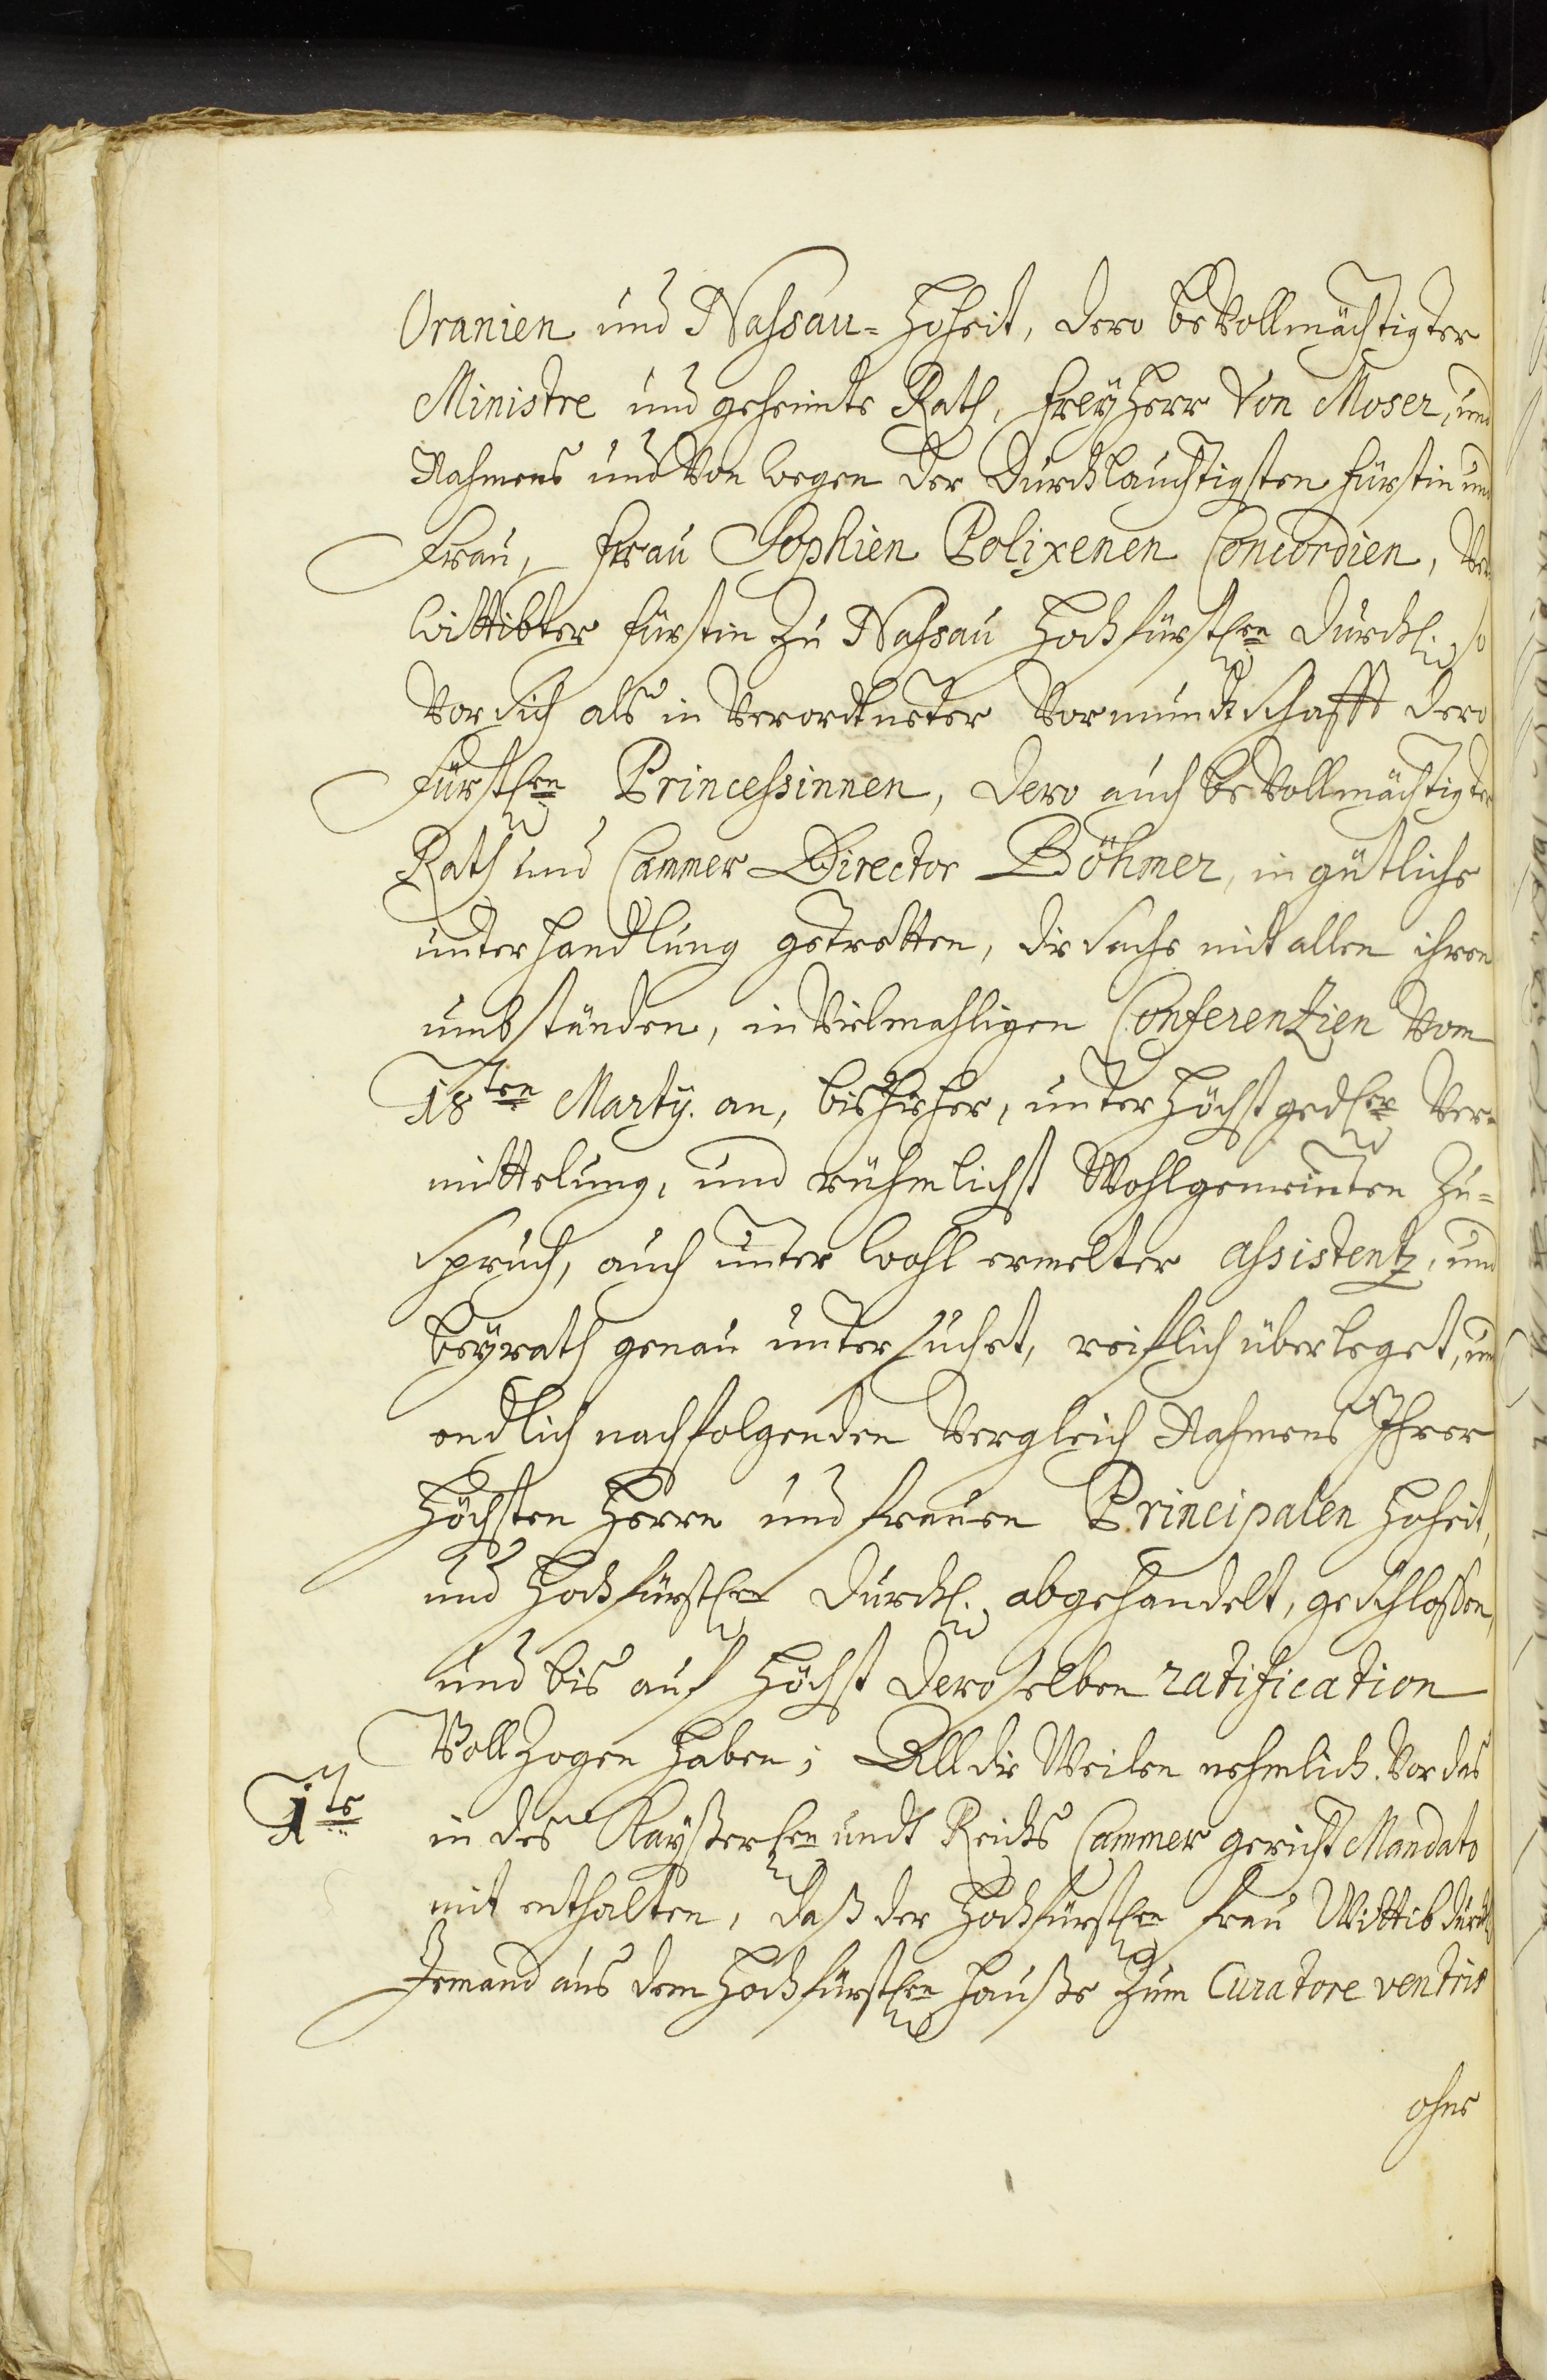 Oranien und Nassau= Hoheit, dero bevollmächtigter
Ministre und geheimte Rath, freyherr Von Moser, und
Nahmens und Von wegen der Durchlauchtigsten fürstin und
frau, frau Sophien Polixenen Concordien, Ver¬
wittibter fürstin zu Nassau Hochfürstlen Durchl. so
Vor sich als in Verordtneter Vormundtschafft dero
fürstlen Princessinnen, dero auch bevollmächtigter
Rath und Cammer Director Böhmer, in gütliche
unterhandlung getretten, die sache mit allen ihren
umbständen, in Vielmahligen Conferentzien Vom
18ten Martÿ. an, bishieher, unter Höchstgedler Ver¬
mittelung, und rühmlichst Wohlgemeinten Zu=
spruch, auch unter wohl ermelter assistentz, und
beÿrath genau untersuchet, reiflich überleget, und
endlich nachfolgenden Vergleich Nahmens Ihrer
Höchsten Herrn und frauen Principalen Hoheit,
und Hochfürstlen Durchl. abgehandelt, geschlossen,
und bis auf Höchst deroselben ratification
Vollzogen haben; All die Weilen nehmlich. Vor das
1te in des Kaÿßerlen undt Reichs Cammer gericht Mandato
mit enthalten, daß der Hochfürstlen frau Wittib Durchl
Jemand aus dem Hochfürstlen Hauße zum Curatore ventris
ohne